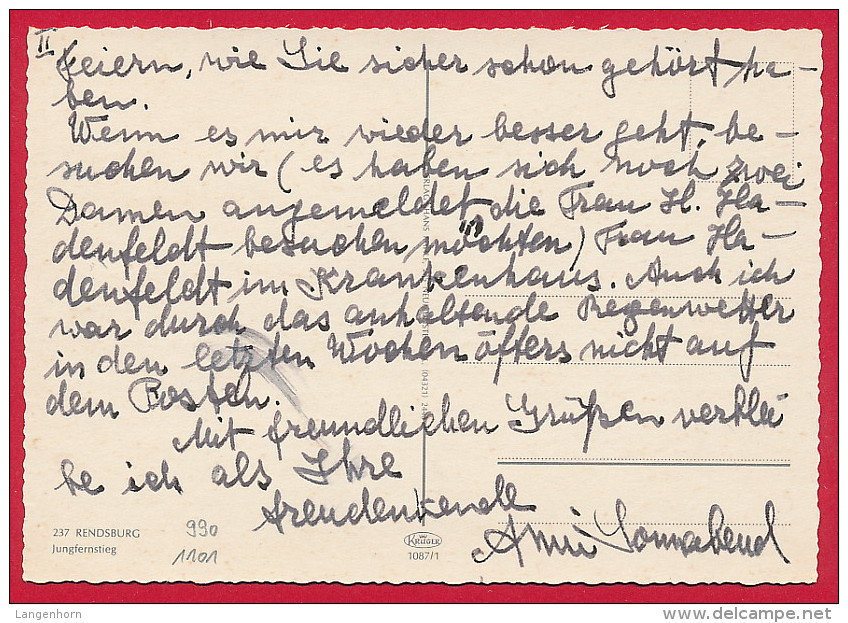 II
feiern, wie Sie sicher schon gehört ha-
ben.
Wenn es mir wieder besser geht, be-
suchen wir (es haben sich noch zwei
Damen angemeldet die Frau H. Ha-
denfeldt besuchen möchten) Frau Ha-
denfeldt im Krankenhaus. Auch ich
war durch das anhaltende Regenwetter
in den letzten Wochen öfters nicht auf
dem Posten.
Mit freundlichen Grüßen verblei
be ich als Ihre
treudenkende
Sonnabend
237 RENDSBURG
Jungfernstieg
990
1101
KRÜGER
1087/1
Langenhorn
delcampe.net